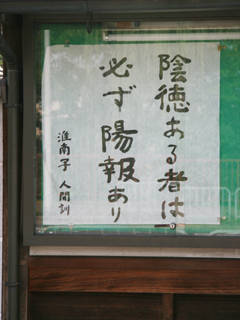 陰徳ある者は、
必ず陽報あり
淮南子 人間訓